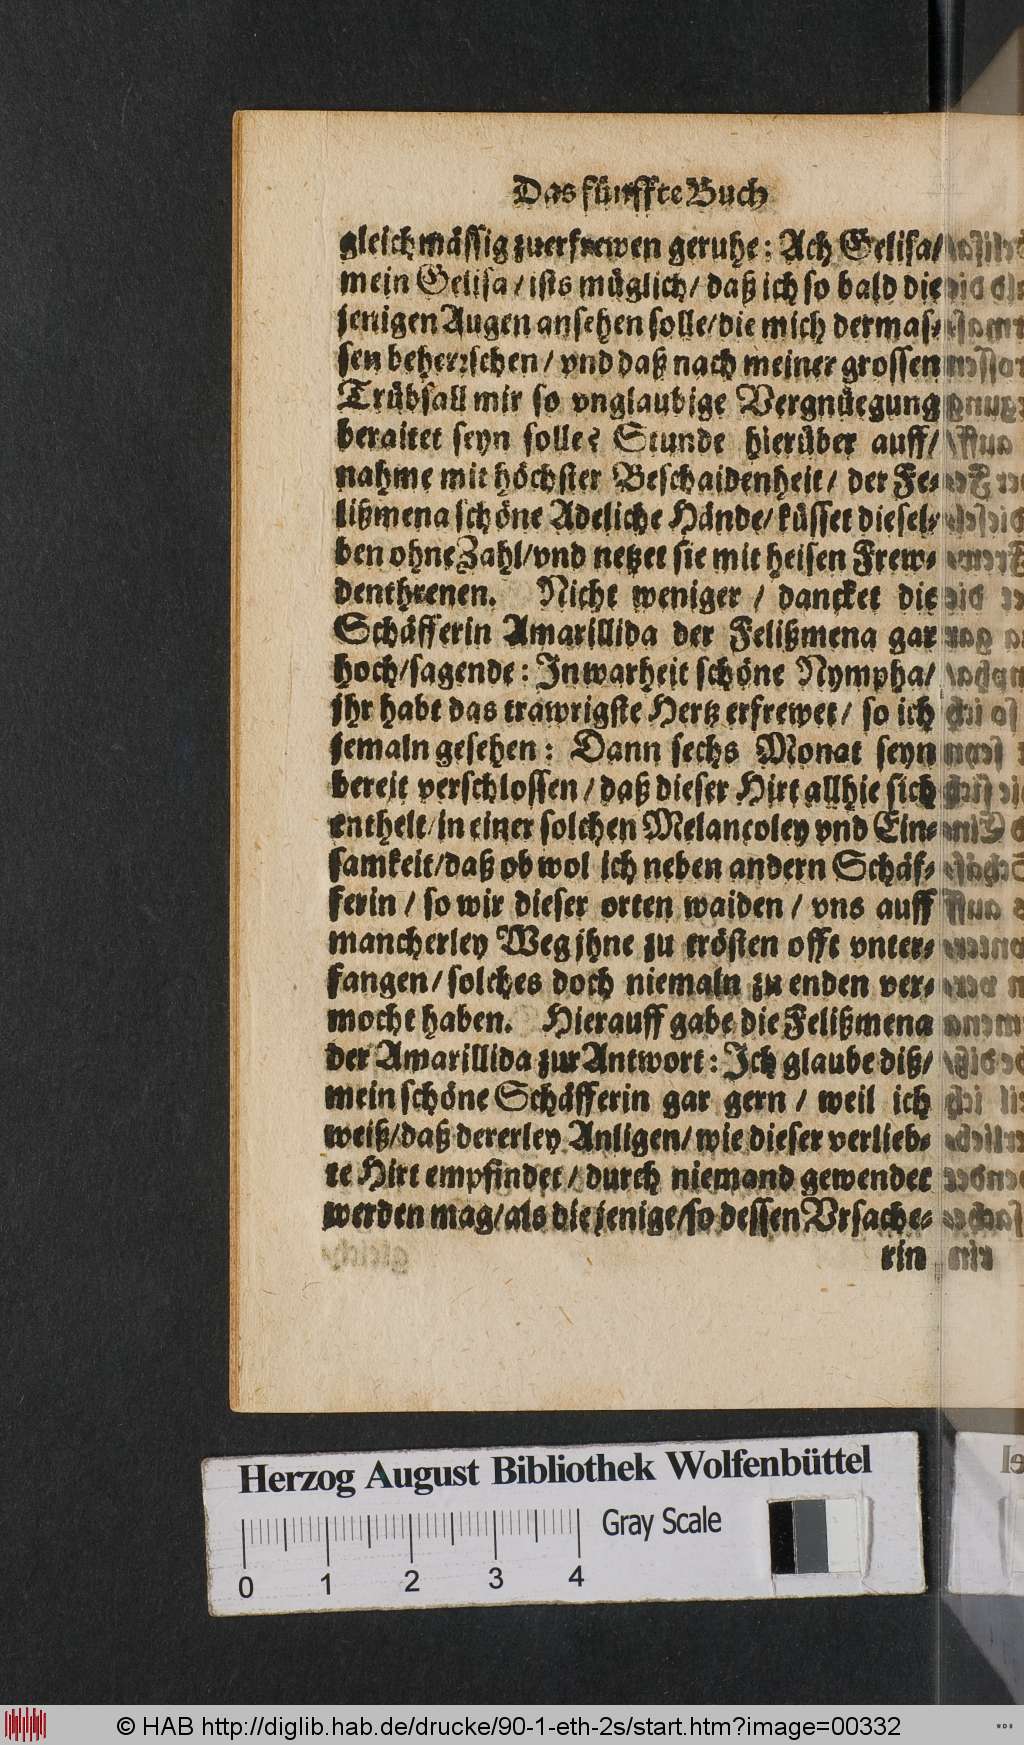 Das fünffte Buch
gleichmässig zuerfrewen geruhe: Ach Gelisa/
mein Gelisa/ ists müglich/ daß ich so bald die
jenigen Augen ansehen solle/ die mich dermas-
sen beherrschen/ vnd daß nach meiner grossen
Trübsall mir so vnglaubige Vergnüegung
beraitet seyn solle? Stunde hierüber auff/
nahme mit höchster Beschaidenheit/ der Fe-
lißmena schöne Adeliche Hände/ küsset diesel-
ben ohne Zahl/ vnd netzet sie mit heisen Frew-
denthrenen. Nicht weniger / dancket die
Schäfferin Amarillida der Felißmena gar
hoch/ sagende: In warheit schöne Nympha/
jhr habt das trawrigste Hertz erfrewet/ so ich
jemaln gesehen: Dann sechs Monat seyn
bereit verschlossen/ daß dieser Hirt allhie sich
enthelt/ in einer solchen Melancoley vnd Ein-
samkeit/ daß ob wol ich neben andern Schäf-
ferin / so wir dieser orten waiden / vns auff
mancherley Weg jhne zu trösten offt vnter-
fangen/ solches doch niemaln zu enden ver-
mocht haben. Hierauff gabe die Felißmena
der Amarillida zur Antwort: Ich glaube diß/
mein schöne Schäfferin gar gern / weil ich
weiß/ daß dererley Anligen/ wie dieser verlieb-
te Hirt empfindet/ durch niemand gewendet
werden mag/ als die jenige/ so dessen Vrsache-
rin
Herzog August Bibliothek Wolfenbüttel
Gray Scale
0 1 2 3 4
© HAB http://diglib.hab.de/drucke/90-1-eth-2s/start.htm?image=00332